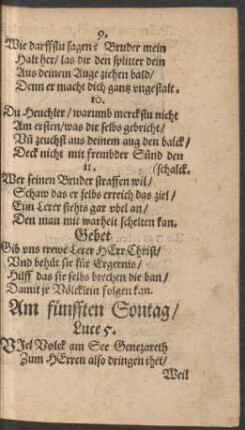 9.
Wie darffstu sagen? Bruder mein
Halt her/ las dir den splitter dein
Aus deinem Auge ziehen bald/
Denn er macht dich gantz vngestalt.
10.
Du Heuchler/ warumb merckstu nicht
Am ersten/ was dir selbs gebricht/
Vñ zeuchst aus deinem aug den balck/
Deck nicht mit frembder Sünd den
11. (schalck.
Wer seinen Bruder straffen wil/
Schaw das er selbs erreich das ziel/
Ein Lerer stehts gar vbel an/
Den man mit warheit schelten kan.
Gebet
Gib vns trewe Lerer HErr Christ/
Vnd behüt sie für Ergernis/
Hilff das sie selbs brechen die ban/
Damit jr Völcklein folgen kan.
Am fünfften Sontag/
Luce 5.
VJel Volck am See Genezareth
Zum HErren also dringen thet/
Weil